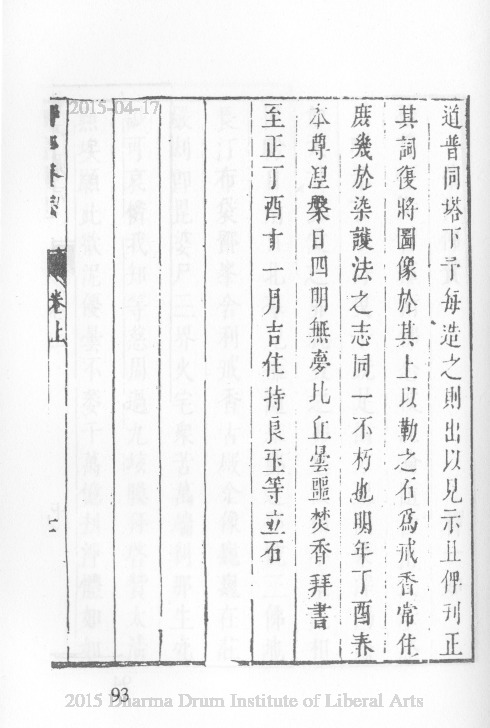 道普同塔下予每造之則出以見示且俾刊正
其詞復將圖像於其上以勒之石為戒香常住
庶幾於染護法之志同一不朽也明年丁酉春
本尊涅槃日四明無夢比丘曇噩焚香拜書
至正丁酉十一月吉住持良玉等立石
卷上
2015-04-17
93
2015 Dharma Drum Institute of Liberal Arts